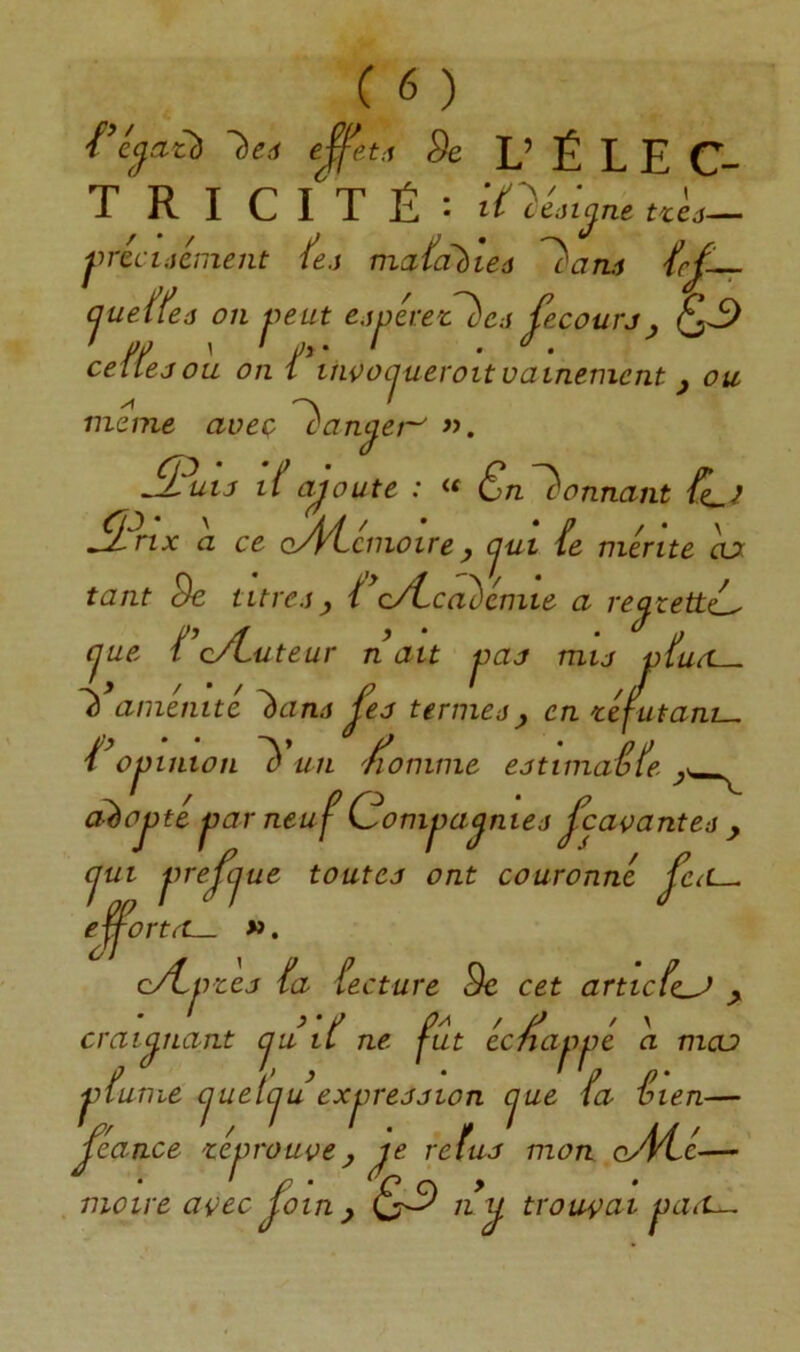 ( 6 )
l'égard des effets de L'ÉLEC-
TRICITÉ : il désigne très-
précisément les maladies dans lef-
quelles on peut espérer des fecours, &
celles où on l'invoqueroit vainement, ou
même avec danger ».
Puis il ajoute : « En donnant le
Prix à ce Mémoire, qui le mérite à
tant de titres, l'Académie a regretté
que l'Auteur n'ait pas mis plus
d'aménité dans fes termes, en réfutant
l'opinion d'un homme estimable,
adopté par neuf Compagnies fçavantes,
qui prefque toutes ont couronné fes
efforts ».
Après la lecture de cet article,
craignant qu'il ne fût échappé à ma
plume quelqu'expression que la bien-
féance réprouve, je relus mon Mé-
moire avec foin, & n'y trouvai pas